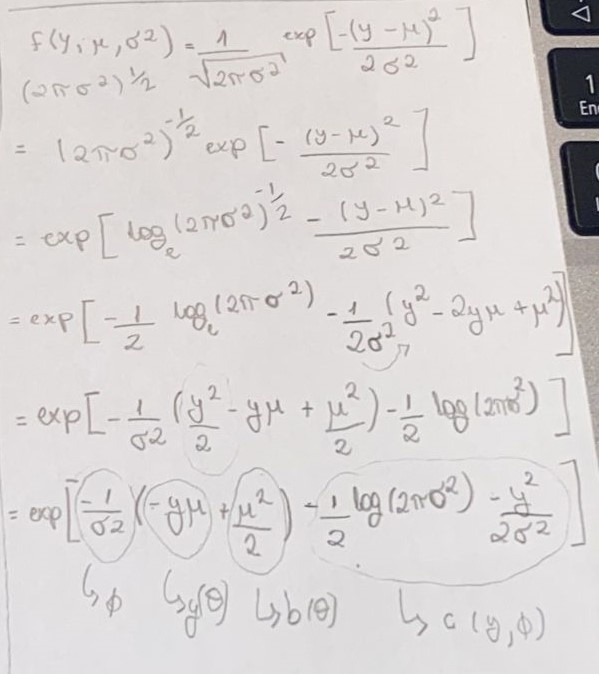 f(y, μ, σ²) = 1/√(2πσ²) exp[-(y - μ)²/2σ²]
(2πσ²)^1/2
= (2πσ²)^-1/2 exp[- (y-μ)²/2σ²]
= exp[log_e (2πσ²)^-1/2 - (y-μ)²/2σ²]
= exp[-1/2 log_e (2πσ²) - 1/2σ² (y² - 2yμ + μ²)]
= exp[-1/σ² (y²/2 - yμ + μ²/2) - 1/2 log(2πσ²)]
= exp[-1/σ² (-yμ + μ²/2) - 1/2 log(2πσ²) - y²/2σ²]
↳ φ ↳ y(θ) ↳ b(θ) ↳ c (y, φ)
1